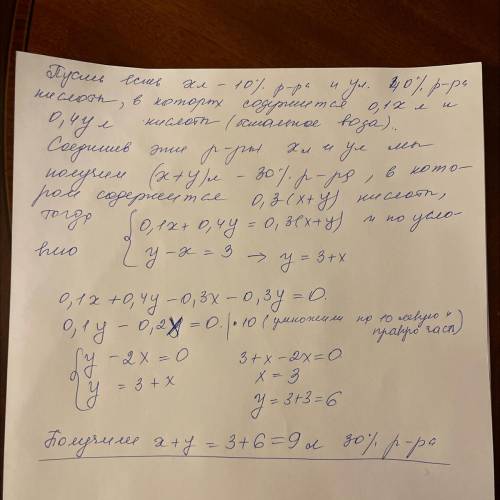 Пусть есть x л - 10% р-ра и y л. 40% р-ра
кислоты, в которых содержится 0,1x л и
0,4y л кислоты (остальное вода).
Соединив эти р-ры x л и y л мы
получим (x+y) л - 30% р-ра, в кото-
ром содержится 0,3(x+y) кислоты,
тогда { 0,1x + 0,4y = 0,3(x+y) и по усло-
вию y - x = 3 → y = 3+x
0,1x + 0,4y - 0,3x - 0,3y = 0.
0,1y - 0,2x = 0. | • 10 (умножили на 10 левую и
правую часть)
{ y - 2x = 0 3 + x - 2x = 0
y = 3 + x x = 3
y = 3+3 = 6
Получили x + y = 3 + 6 = 9 л 30% р-ра